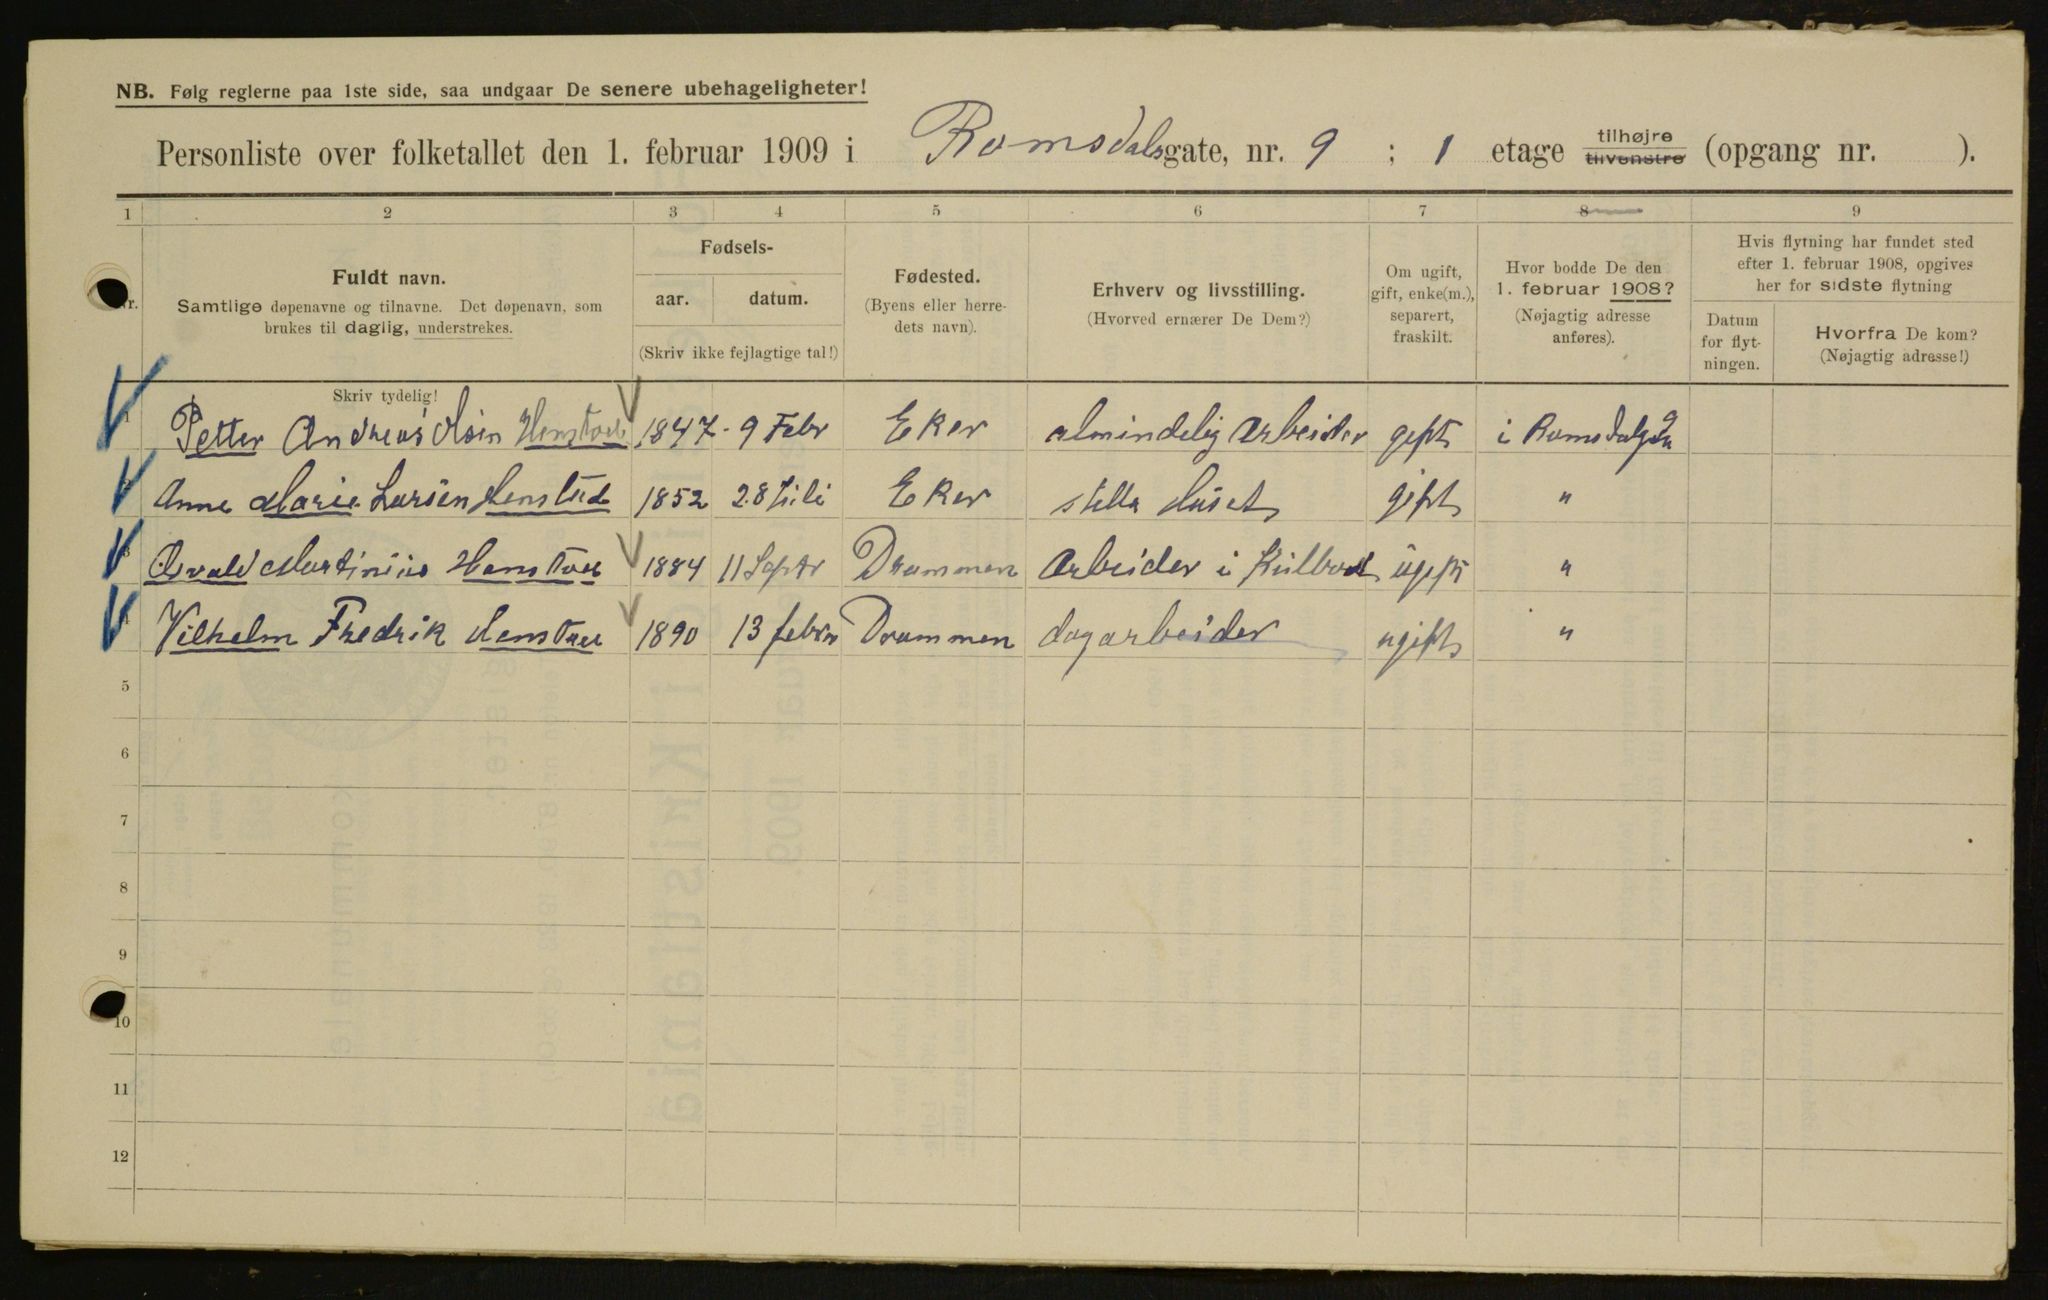 NB. Følg reglerne paa 1ste side, saa undgaar De senere ubehageligheter!
Personliste over folketallet den 1. februar 1909 i Romsdalsgate, nr. 9 ; 1 etage tilhøjre tilvenstre (opgang nr. ).
1 2 3 4 5 6 7 8 9
Nr.
Fuldt navn.
Samtlige døpenavne og tilnavne. Det døpenavn, som
brukes til daglig, understrekes.
Fødsels-
aar. datum.
(Skriv ikke fejlagtige tal!)
Fødested.
(Byens eller herre-
dets navn).
Erhverv og livsstilling.
(Hvorved ernærer De Dem?)
Om ugift,
gift, enke(m.),
separert,
fraskilt.
Hvor bodde De den
1. februar 1908?
(Nøjagtig adresse
anføres).
Hvis flytning har fundet sted
efter 1. februar 1908, opgives
her for sidste flytning
Datum
for flyt-
ningen.
Hvorfra De kom?
(Nøjagtig adresse!)
Skriv tydelig!
1 Petter Andreas Olsen 1847 9 Febr Eker almindelig Arbeider gift i Romsdalsg 9
2 Anne Marie Larsen Henstad 1852 28 Juli Eker stella Huset gift "
3 Osvald Martinius 1884 11 Septr Drammen Arbeider i ugift "
4 Vilhelm Fredrik 1890 13 febr Drammen dagarbeider ugift "
5
6
7
8
9
10
11
12